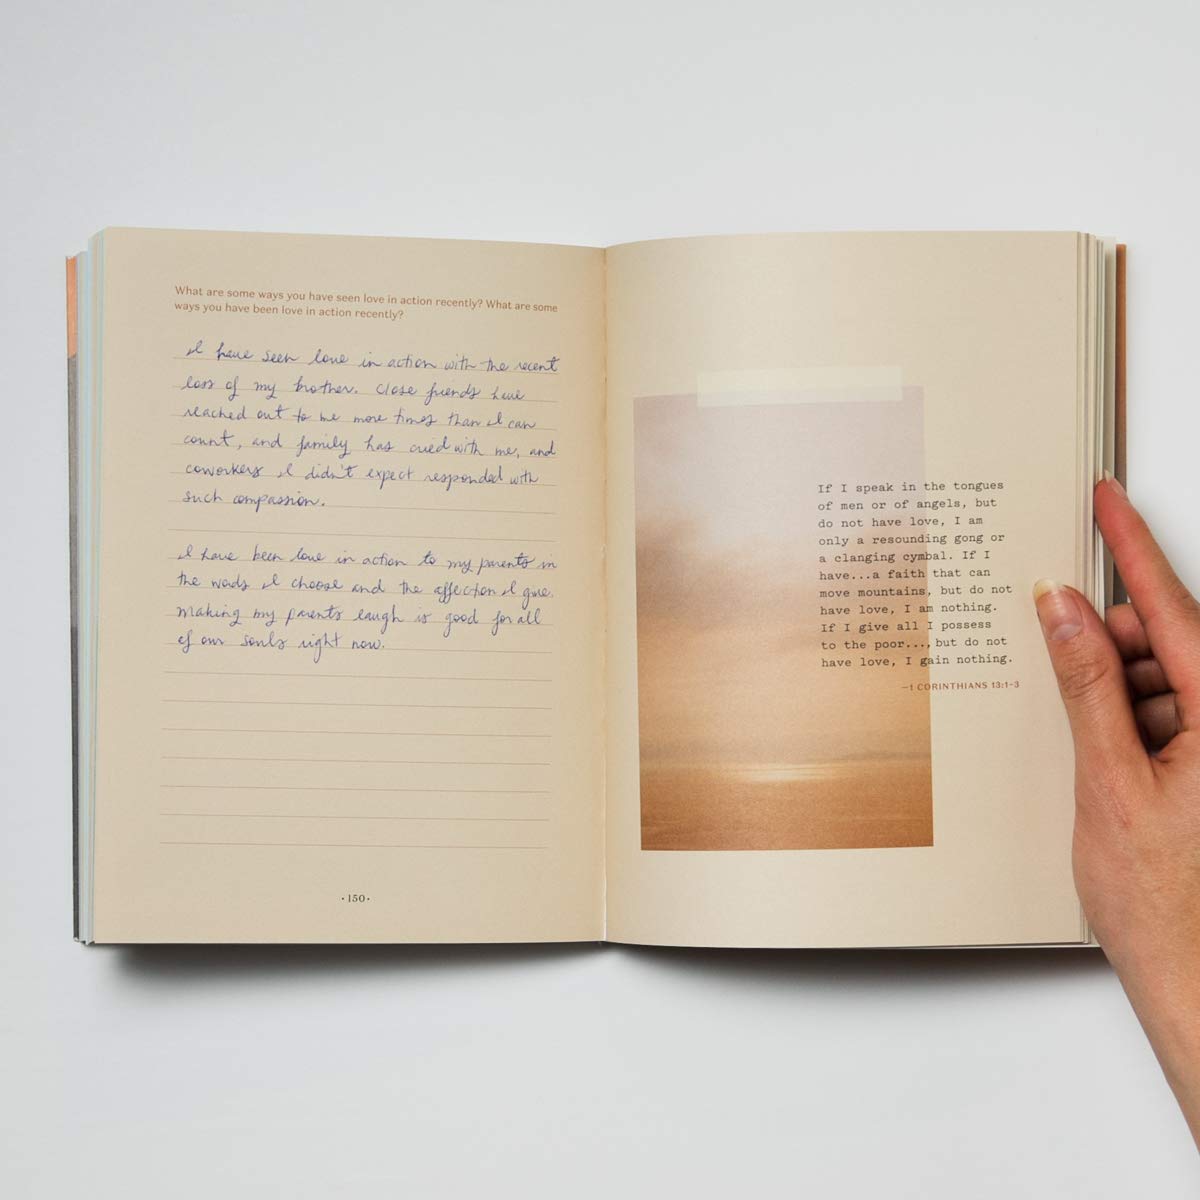 What are some ways you have seen love in action recently? What are some
ways you have been love in action recently?
I have seen love in action with the recent
loss of my brother. Close friends have
reached out to me more times than I can
count, and family has cried with me, and
coworkers I didn't expect responded with
such compassion.
I have been love in action to my parents in
the words I choose and the affection I give.
Making my parents laugh is good for all
of our souls right now.
·150·
If I speak in the tongues
of men or of angels, but
do not have love, I am
only a resounding gong or
a clanging cymbal. If I
have...a faith that can
move mountains, but do not
have love, I am nothing.
If I give all I possess
to the poor..., but do not
have love, I gain nothing.
—1 CORINTHIANS 13:1-3